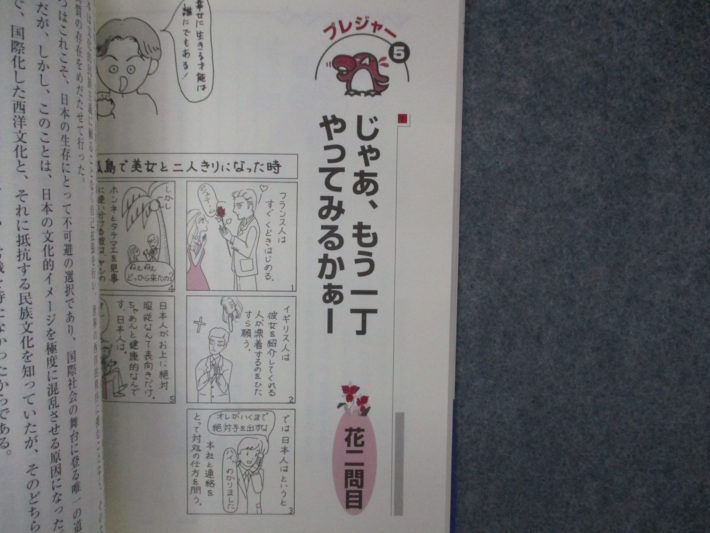 プレジャー
5
じゃあ、もう一丁
やってみるかぁー
花二問目
幸せに生きる才能は
誰にでもある！
島で美女と二人きりになった時
フランス人は
すぐくどきはじめる．
1
イギリス人は
彼女を紹介してくれる
人が漂着するのをひた
すら願う．
2
では日本人はというと
オレがいくまで
絶対手を出すな
本社と連絡を
とって対処の仕方を問う．
ハイ、わかりました
3
しかし
ホンネとタテマエを見事
どっから来たの
4
日本人がお上に絶対
服従なんて表向きだけ．
ちゃあんと健康的なんで
す．日本人は．
5
質の存在をめだたせて行った。
つはこれこそ、日本の生存にとって不可避の選択であり、国際社会の舞台に登る唯一の道
だが、しかし、このことは、日本の文化的イメージを極度に混乱させる原因になった
で、国際化した西洋文化と、それに抵抗する民族文化を知っていたが、そのどちら
なかったからである。